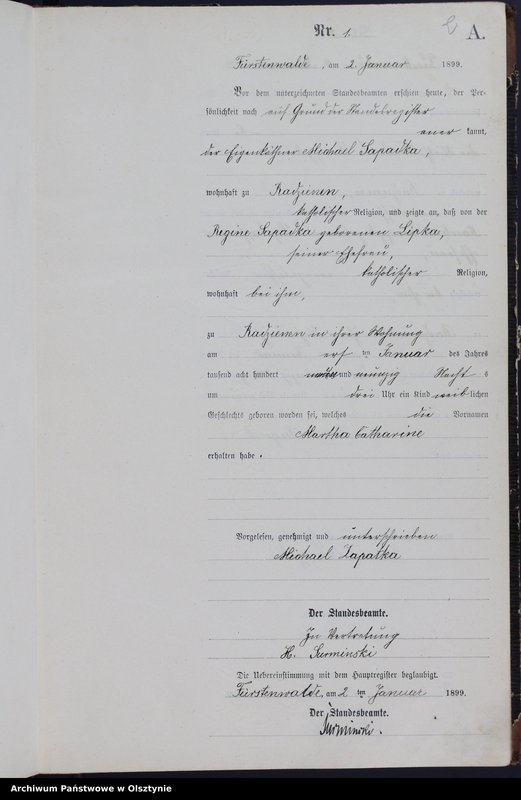 Nr. 1. A.
Fürstenwalde, am 2. Januar 1899.
Vor dem unterzeichneten Standesbeamten erschien heute, der Per-
sönlichkeit nach auf Grund der Standesregister
aner kannt,
der Eigenkäthner Michael Sapadka,
wohnhaft zu Radzienen,
katholischer Religion, und zeigte an, daß von der
Regine Sapadka geborenen Lipka,
seiner Ehefrau,
katholischer Religion,
wohnhaft bei ihm,
zu Radzienen in ihrer Wohnung
am ersten Januar des Jahres
tausend acht hundert neunzig und neunzig Nacht s
um drei Uhr ein Kind weiblichen
Geschlechts geboren worden sei, welches die Vornamen
Martha Catharine
erhalten habe.
Vorgelesen, genehmigt und unterschrieben
Michael Zapatka
Der Standesbeamte.
In Vertretung
H. Surminski
Die Uebereinstimmung mit dem Hauptregister beglaubigt.
Fürstenwalde, am 2 ten Januar 1899.
Der Standesbeamte.
Surminski.
Archiwum Państwowe w Olsztynie